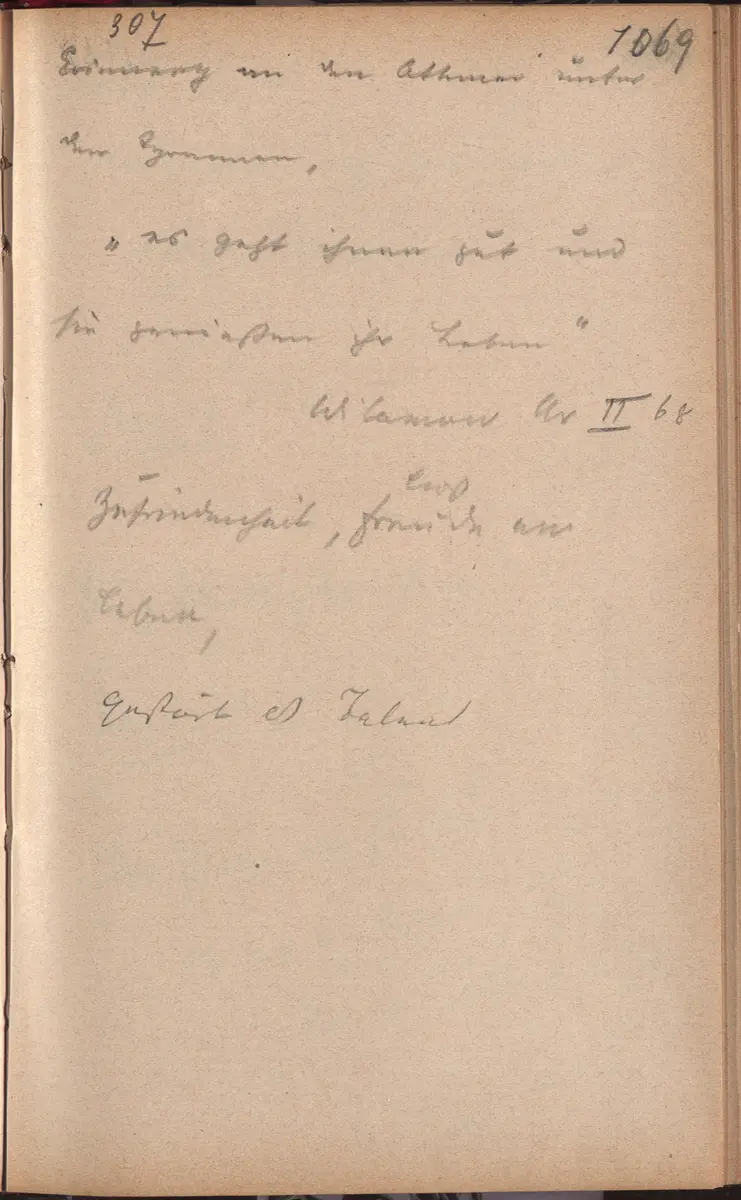 307
1069
Erinnerg an den Athener unter
den Tyrannen,
„es geht ihnen gut und
sie genießen ihr Leben"
Wilamow Ar II 68
Zufriedenheit, Freude am
Leben,
gestört